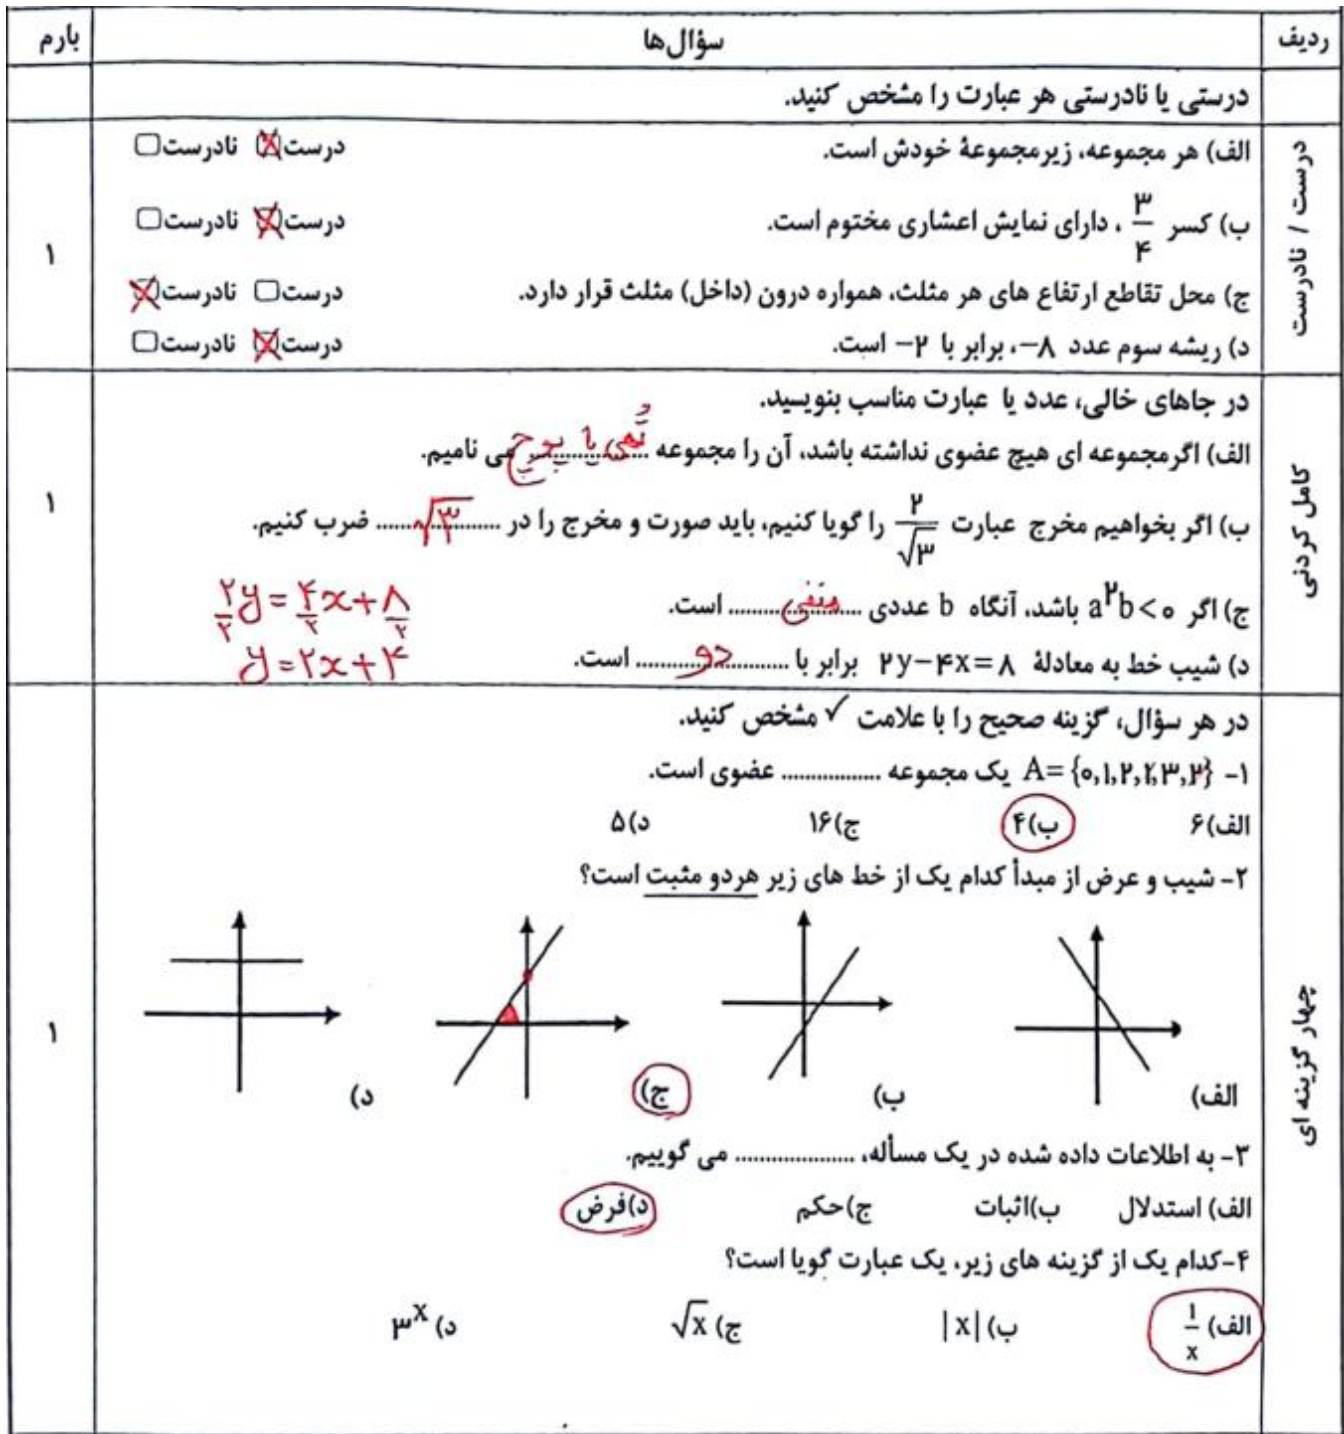 ردیف سؤال‌ها بارم
درستی یا نادرستی هر عبارت را مشخص کنید.
درست / نادرست
الف) هر مجموعه، زیرمجموعهٔ خودش است. درست☒ نادرست☐
ب) کسر ۳/۴ ، دارای نمایش اعشاری مختوم است. درست☒ نادرست☐
۱
ج) محل تقاطع ارتفاع های هر مثلث، همواره درون (داخل) مثلث قرار دارد. درست☐ نادرست☒
د) ریشه سوم عدد ۸−، برابر با ۲− است. درست☒ نادرست☐
کامل کردنی
در جاهای خالی، عدد یا عبارت مناسب بنویسید.
الف) اگرمجموعه ای هیچ عضوی نداشته باشد، آن را مجموعه تُهی یا پوچ می نامیم.
۱
ب) اگر بخواهیم مخرج عبارت ۲/√۳ را گویا کنیم، باید صورت و مخرج را در √۳ ضرب کنیم.
ج) اگر a²b<۰ باشد، آنگاه b عددی منفی است.
۲y/۲ = ۴x/۲ + ۸/۲
د) شیب خط به معادلهٔ ۲y−۴x=۸ برابر با دو است.
y=۲x+۴
چهار گزینه ای
در هر سؤال، گزینه صحیح را با علامت ✓ مشخص کنید.
۱- A={۰,۱,۲,۲,۳,۲} یک مجموعه ................ عضوی است.
الف)۶ ب)۴ ج)۱۶ د)۵
۲- شیب و عرض از مبدأ کدام یک از خط های زیر هردو مثبت است؟
۱
الف) ب) ج) د)
۳- به اطلاعات داده شده در یک مسأله، .................... می گوییم.
الف) استدلال ب)اثبات ج)حکم د)فرض
۴-کدام یک از گزینه های زیر، یک عبارت گویا است؟
الف) ۱/x ب) |x| ج) √x د) ۳^x